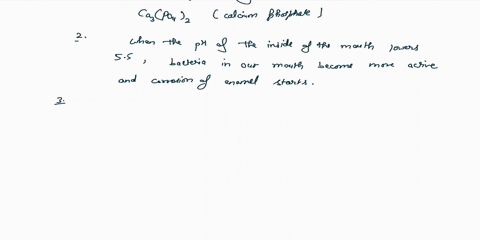 Ca3(PO4)2 (Calcium Phosphate)
2. When the pH of the inside of the mouth lowers
5.5, bacteria in our mouth become more active
and corrosion of enamel starts.
3.